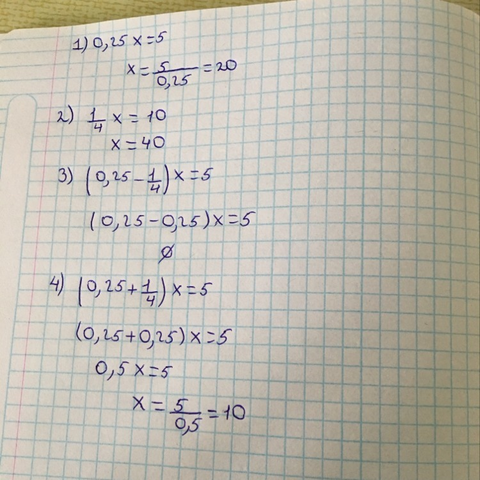 1) 0,25 x = 5
x = 5/0,25 = 20
2) 1/4 x = 10
x = 40
3) (0,25 - 1/4) x = 5
(0,25 - 0,25) x = 5
∅
4) (0,25 + 1/4) x = 5
(0,25 + 0,25) x = 5
0,5 x = 5
x = 5/0,5 = 10